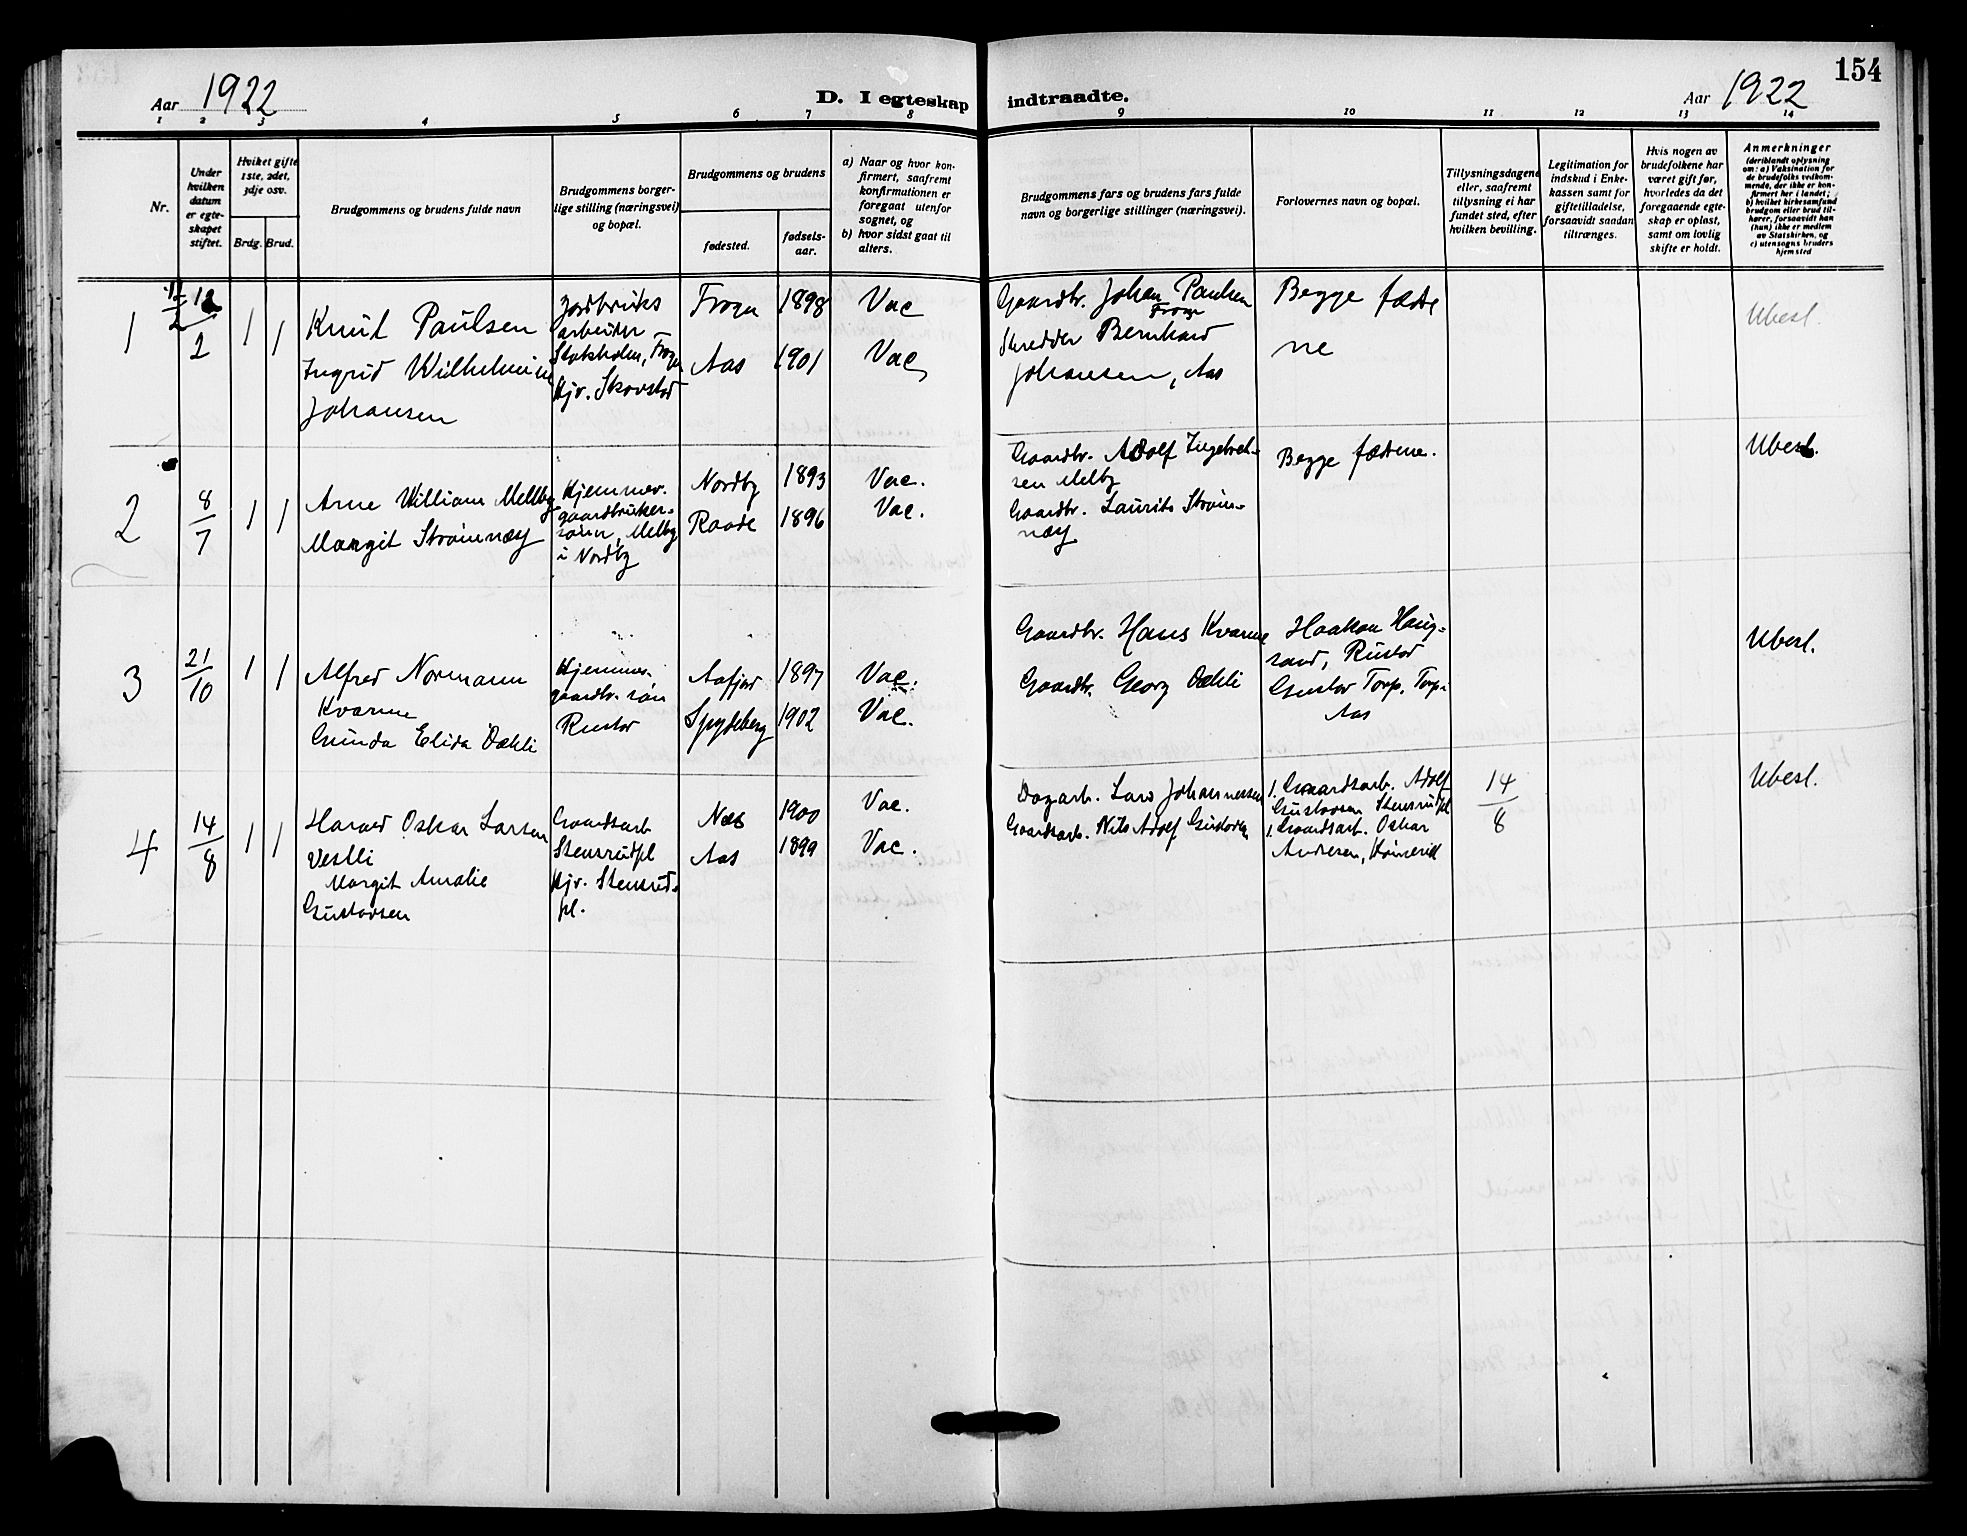 154
Aar 1922
D. I egteskap indtraadte.
Aar 1922
1 2 3 4 5 6 7 8 9 10 11 12 13 14
Nr.
Under
hvilken
datum
er egte-
skapet
stiftet.
Hviket gifte
1ste, 2det,
3dje osv.
Brdg. Brud.
Brudgommens og brudens fulde navn
Brudgommens borger-
lige stilling (næringsvei)
og bopæl.
Brudgommens og brudens
fødested.
fødsels-
aar.
a) Naar og hvor kon-
firmert, saafremt
konfirmationen er
foregaat utenfor
sognet, og
b) hvor sidst gaat til
alters.
Brudgommens fars og brudens fars fulde
navn og borgerlige stillinger (næringsvei).
Forlovernes navn og bopæl.
Tillysningsdagene
eller, saafremt
tillysning ei har
fundet sted, efter
hvilken bevilling.
Legitimation for
indskud i Enke-
kassen samt for
giftetilladelse,
forsaavidt saadan
tiltrænges.
Hvis nogen av
brudefolkene har
været gift før,
hvorledes da det
foregaaende egte-
skap er opløst,
samt om lovlig
skifte er holdt.
Anmerkninger
(deriblandt oplysning
om: a) Vaksination for
de brudefolks vedkom-
mende, der ikke er kon-
firmert her i landet;
b) hvilket kirkesamfund
brudgom eller brud til-
hører, forsaavidt han
(hun) ikke er medlem
av Statskirken, og
c) utensogns bruders
hjemsted
1
2
1 1
Knut Paulsen
Ingrid Wilhelmine
Johansen
Jordbruks
arbeider
Stoksholm, Frogn
Hjv. Skovstad
Frogn 1898 Vac
Aas 1901 Vac
Gaardbr. Johan Paulsen
Frogn
Skredder Bernhard
Johansen, Aas
Begge fædre
ne
Ubesl.
2
8
7
1 1
Arne William Mellby
Margit Strømnæs
Hjemmev.
gaardbruker-
søn, Melby
i Nordby
Nordby 1893 Vac.
Raade 1896 Vac.
Gaardbr. Adolf Ingebret-
sen Melby
Gaardbr. Laurits Strøm-
næs
Begge fædrene.
Ubesl.
3
21
10
1 1
Alfred Normann
Kvarme
Gunda Elida Dæhli
Hjemmev.
gaardbr. søn
Rustad
Aafjord 1897 Vac.
Spydeberg 1902 Vac.
Gaardbr. Hans Kvarme
Gaardbr. Georg Dæhli
Haakon Haug-
sand, Rustad
Gustav Torp, Torp i
Aas
Ubesl.
4
14
8
1 1
Harald Oskar Larsen
Vestli
Margit Amalie
Gustavsen
Gaardsarb
Stensrudpl
Hjv. Stensrud-
pl.
Næs 1900 Vac.
Aas 1899 Vac.
Dagarb. Lars Johannessen
Gaardsarb. Nils Adolf Gustavsen
1. Gaardsarb. Adolf
Gustavsen Stensrudpl
1. Gaardsarb. Oskar
Andresen,
14
8
Ubesl.